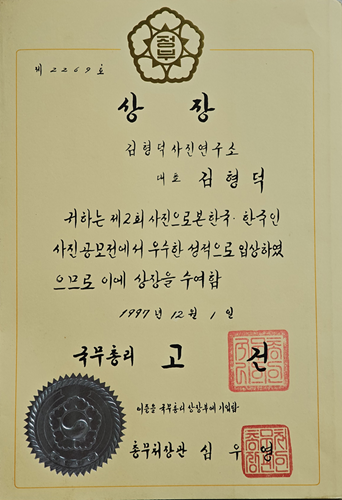 정부
제 2269 호
상 장
김형덕사진연구소
대표 김형덕
귀하는 제2회 사진으로본한국·한국인
사진공모전에서 우수한 성적으로 입상하였
으므로 이에 상장을 수여함
1997년 12월 1일
국무총리 고 건
이증을 국무총리 상장부에 기입함
총무처장관 심 우 영